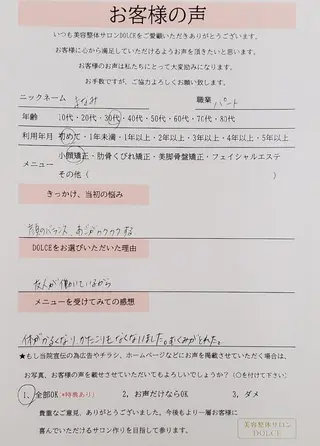 お客様の声
いつも美容整体サロンDOLCEをご愛顧いただきありがとうございます。
お客様に心から満足していただけるようお声を頂きたいと思います。
お客様のお声は私たちにとって大変励みになります。
お手数ですが、ご協力よろしくお願い致します。
ニックネーム まなみ 職業 パート
年齢 10代・20代・30代・40代・50代・60代・70代・80代
利用年月 初めて・1年未満・1年以上・2年以上・3年以上・4年以上・5年以上
メニュー 小顔矯正・肋骨くびれ矯正・美脚骨盤矯正・フェイシャルエステ
その他( )
きっかけ、当初の悩み
顔のバランス、あごがカクカクする
DOLCEをお選びいただいた理由
友人が働いているから
メニューを受けてみての感想
体がかるくなり、かたこりもなくなりました。むくみがとれた。
★もし当院宣伝の為広告やチラシ、ホームページなどにお声を掲載させていただく場合は、
お写真、お客様の声を載せさせていただいてもよろしいでしょうか?(○を付けて下さい)
1、全部OK *特典あり) 2、お声だけならOK 3、ダメ
貴重なご意見、ありがとうございました。今後もより一層お客様に
喜んでいただけるサロン作りを目指して参ります。
美容整体サロン
DOLCE